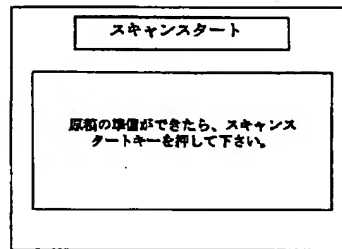 スキャンスタート
原稿の準備ができたら、スキャンス
タートキーを押して下さい。